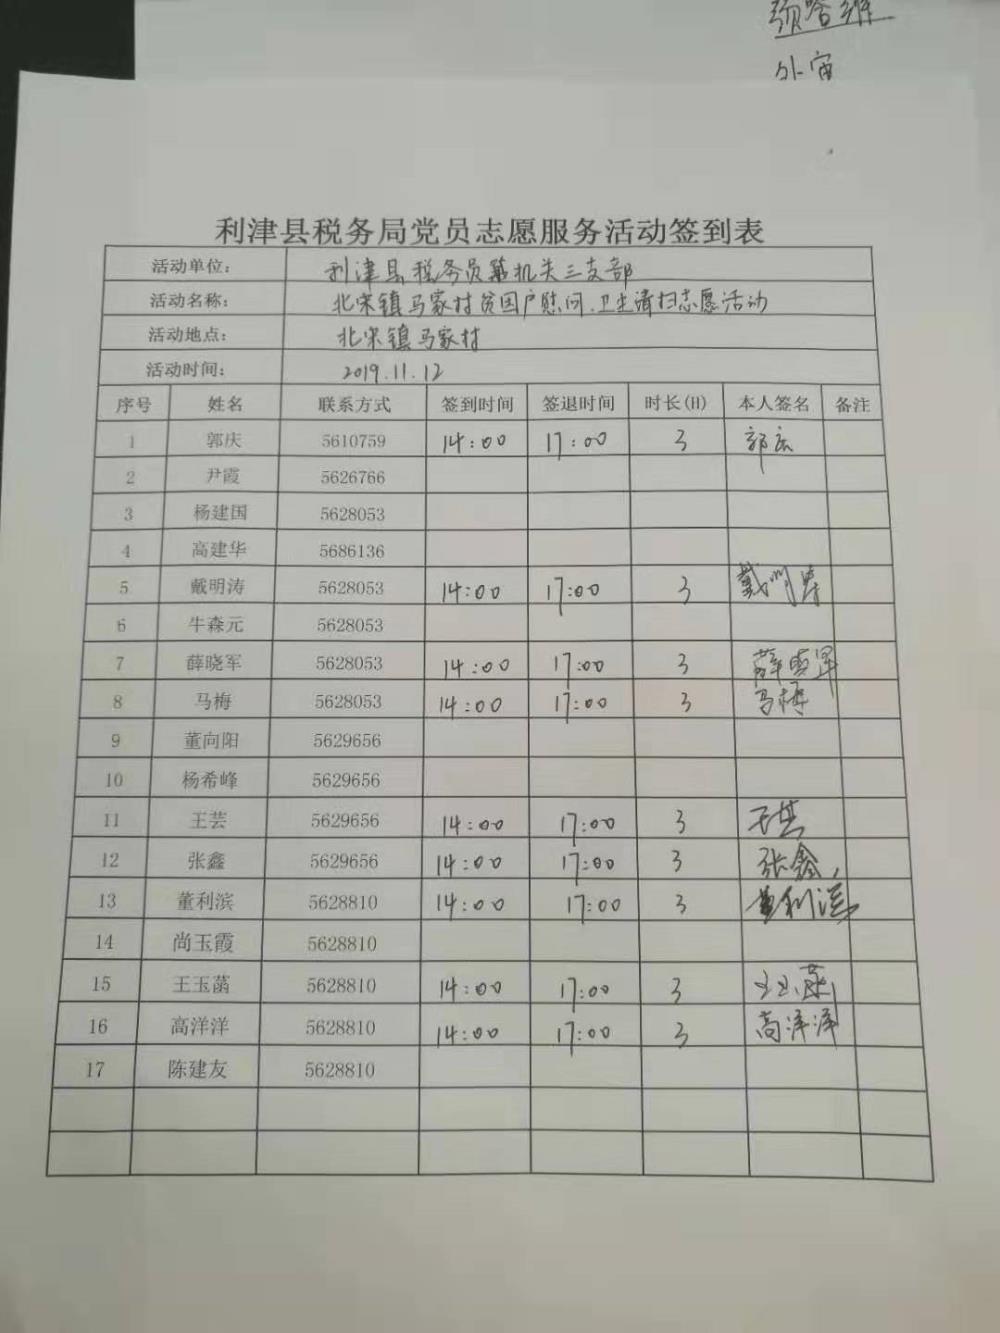 外宙
利津县税务局党员志愿服务活动签到表
活动单位: 利津县税务员第机关三支部
活动名称: 北宋镇马家村贫困户慰问、卫生清扫志愿活动
活动地点: 北宋镇马家村
活动时间: 2019.11.12
序号 姓名 联系方式 签到时间 签退时间 时长(H) 本人签名 备注
1 郭庆 5610759 14:00 17:00 3 郭庆
2 尹霞 5626766
3 杨建国 5628053
4 高建华 5686136
5 戴明涛 5628053 14:00 17:00 3 戴明涛
6 牛森元 5628053
7 薛晓军 5628053 14:00 17:00 3 薛晓军
8 马梅 5628053 14:00 17:00 3 马梅
9 董向阳 5629656
10 杨希峰 5629656
11 王芸 5629656 14:00 17:00 3 王芸
12 张鑫 5629656 14:00 17:00 3 张鑫
13 董利滨 5628810 14:00 17:00 3 董利滨
14 尚玉霞 5628810
15 王玉菡 5628810 14:00 17:00 3 王玉菡
16 高洋洋 5628810 14:00 17:00 3 高洋洋
17 陈建友 5628810